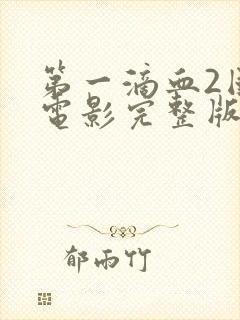 第一滴血2
電影完整版
郁雨竹